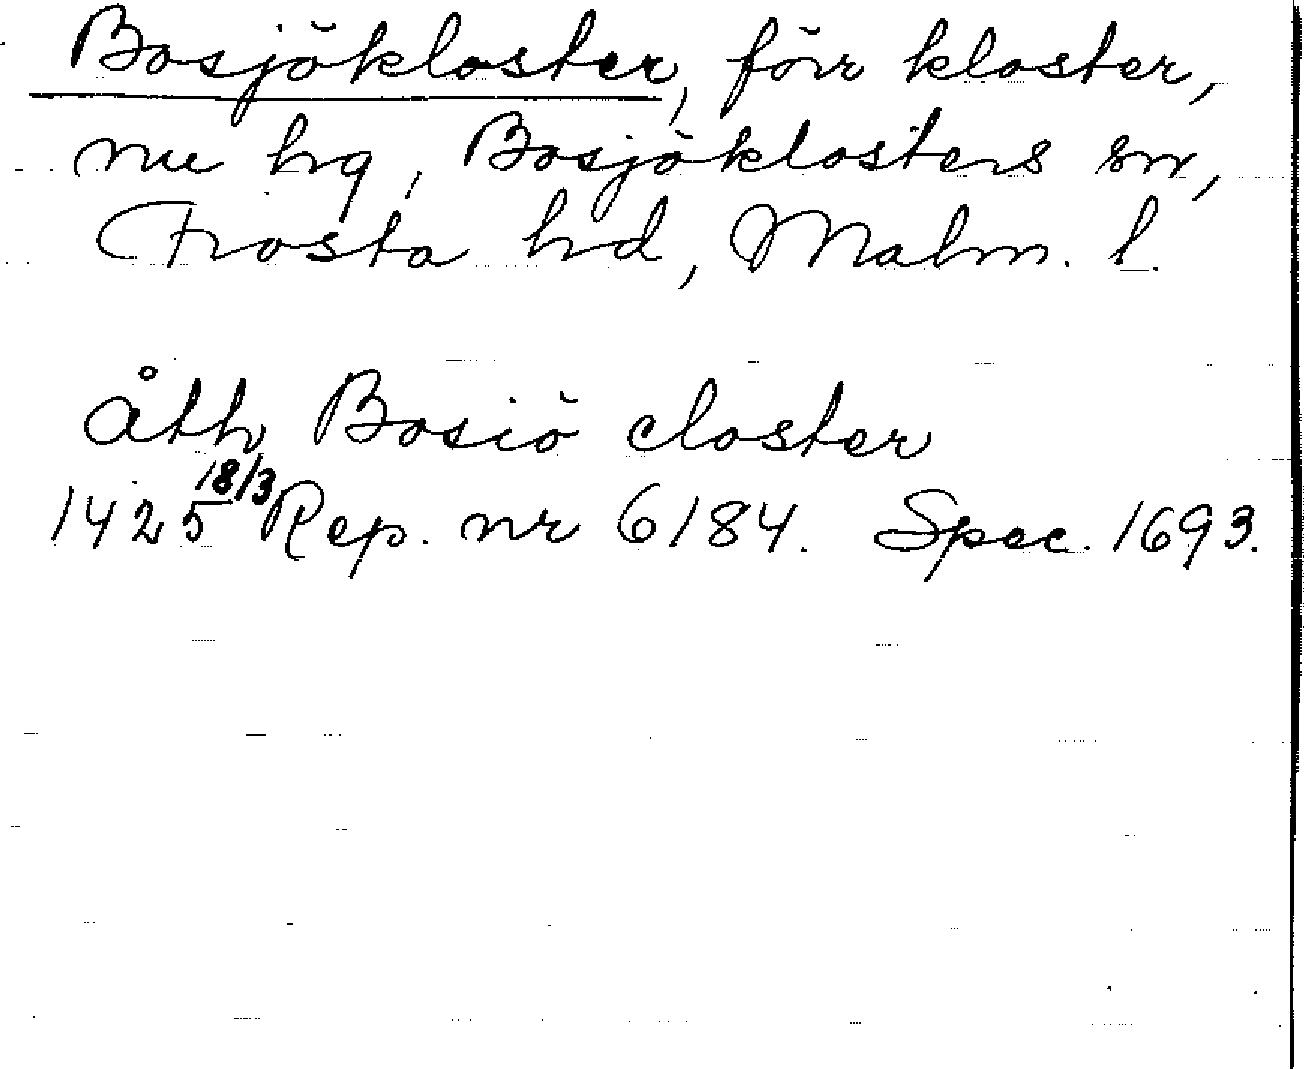 Bosjökloster, förr kloster,
nu hg, Bosjöklosters sn,
Frosta hd, Malm. l.
åth Bosiö closter
1425 18/3 Rep. nr 6184. Spec. 1693.